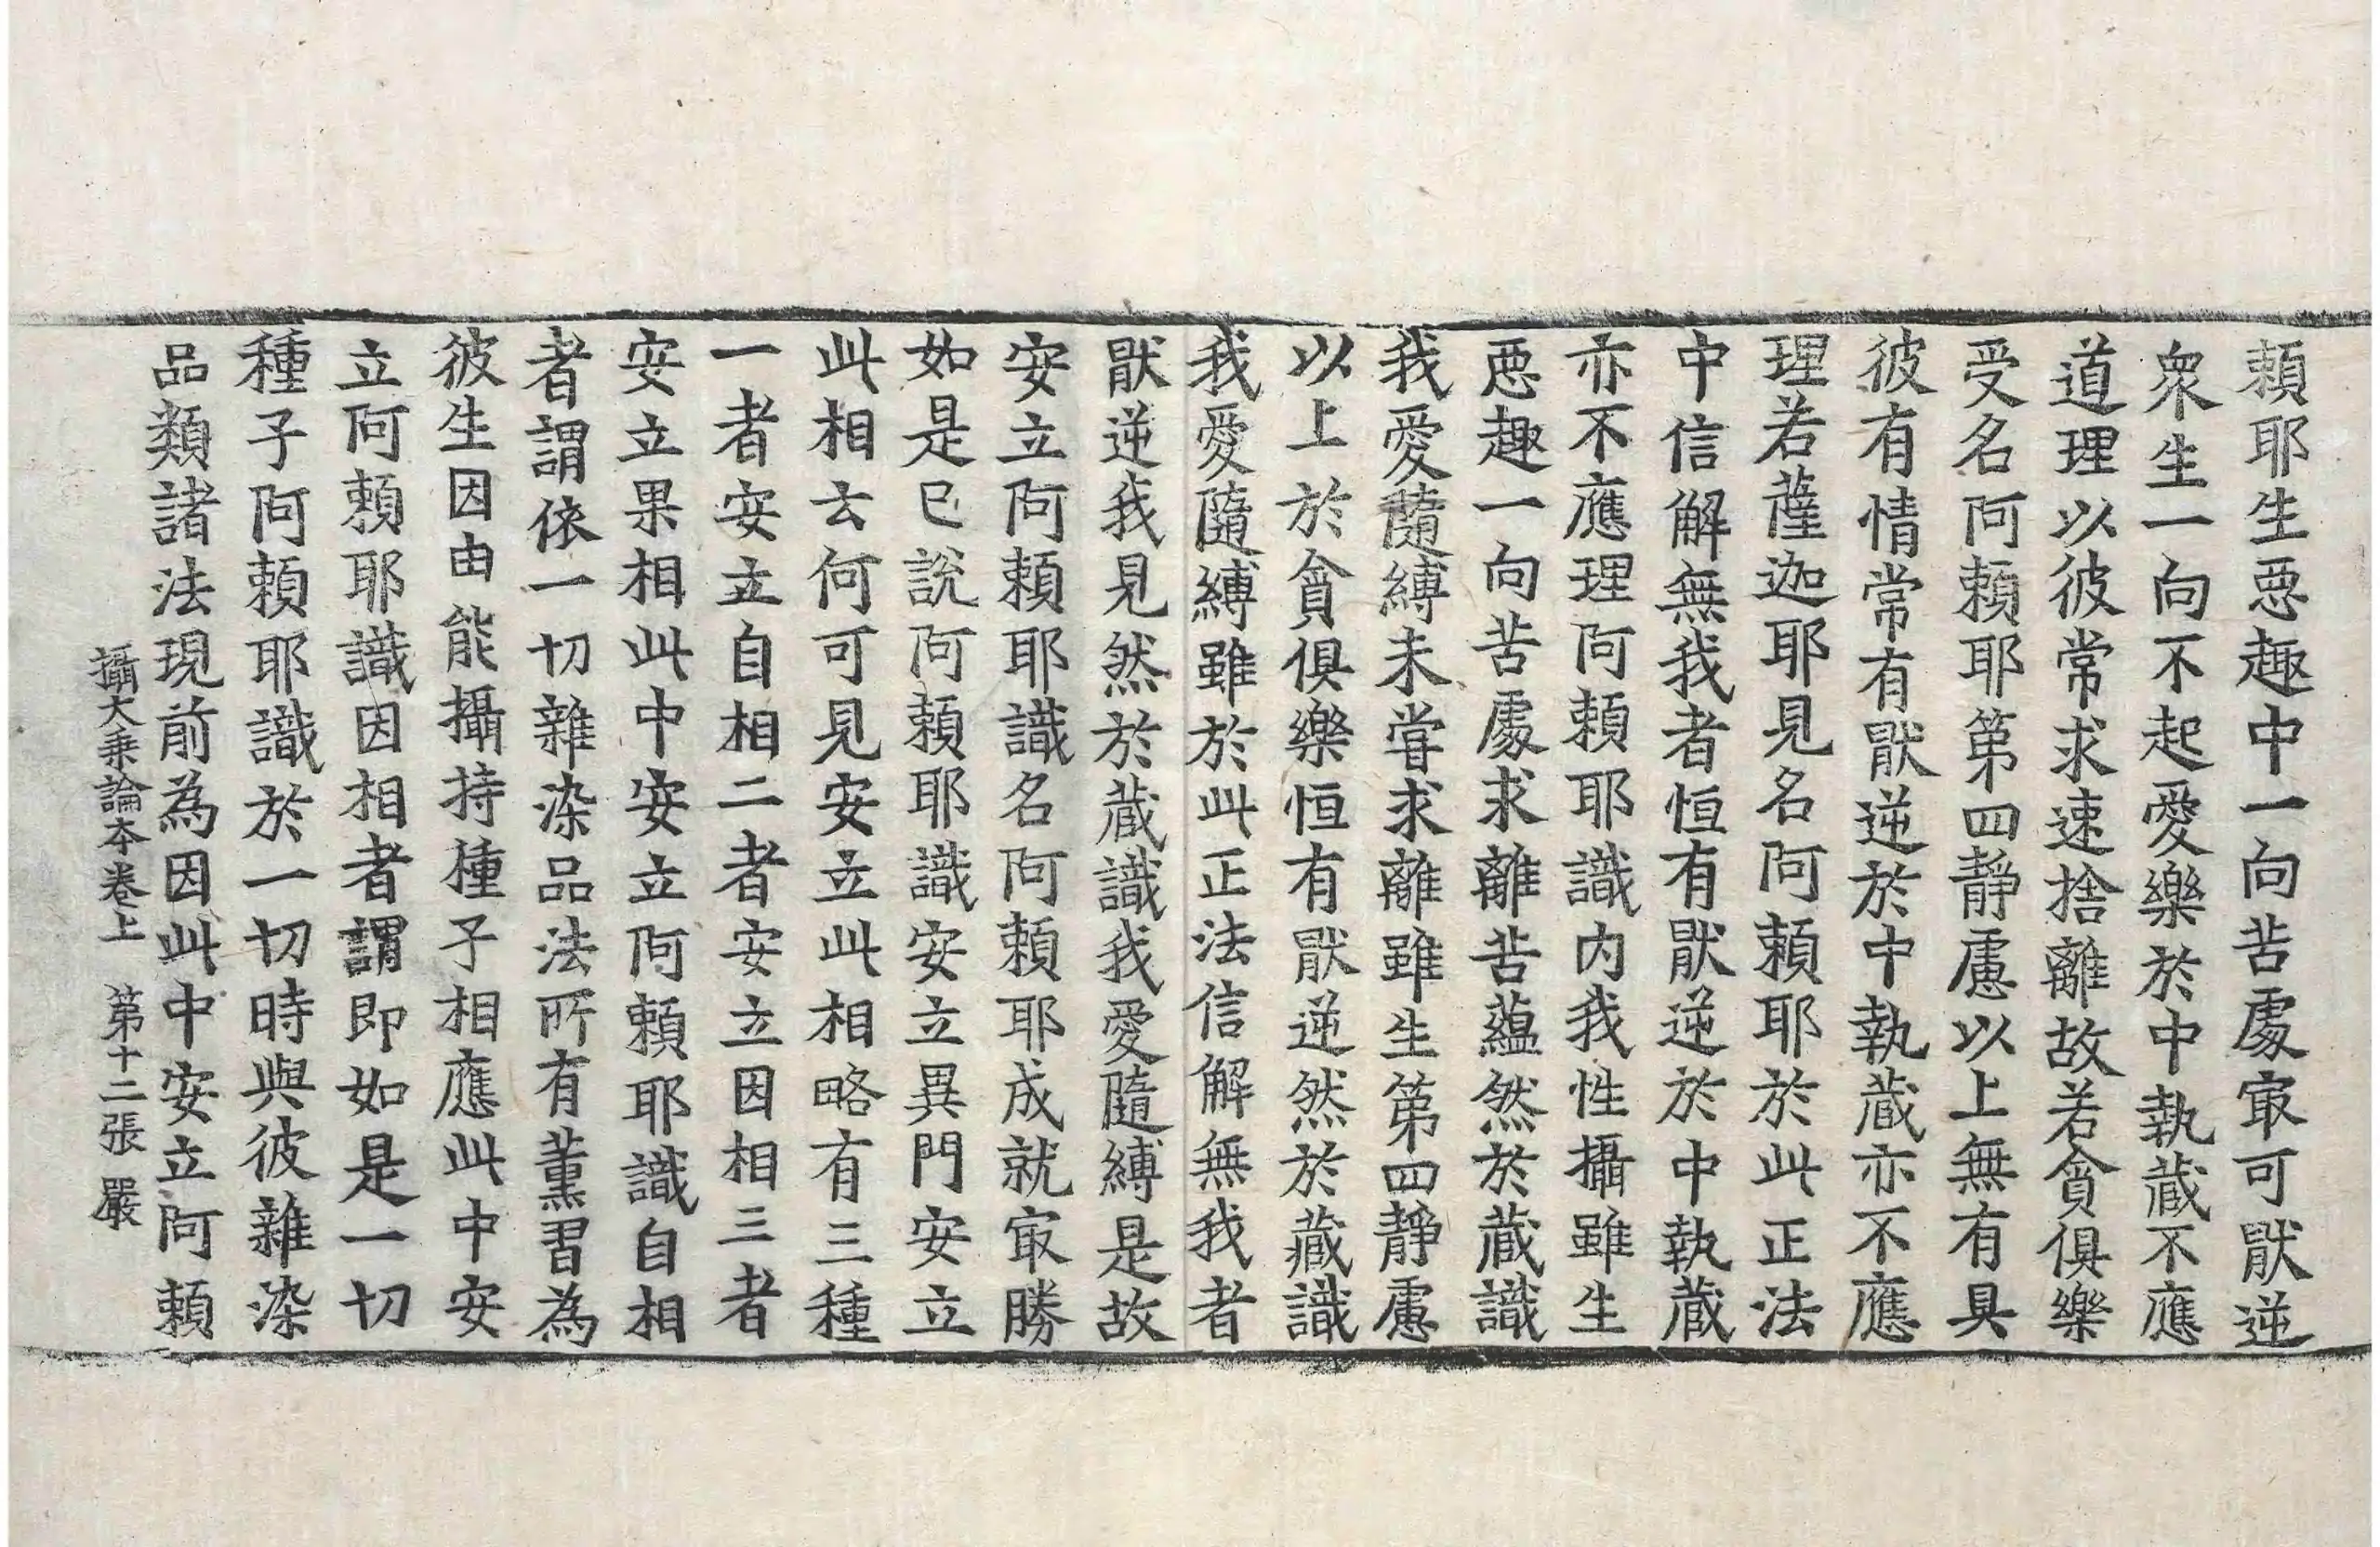 頼耶生惡趣中一向苦處冣可猒逆
衆生一向不起愛樂於中執蔵不應
道理以彼常求速捨離故若貪俱樂
受名阿頼耶第四静慮以上無有具
彼有情常有猒逆於中執蔵亦不應
理若薩迦耶見名阿頼耶於此正法
中信解無我者恒有猒逆於中執蔵
亦不應理阿頼耶識内我性攝雖生
惡趣一向苦處求離苦蘊然於蔵識
我愛隨縛未嘗求離雖生第四靜慮
以上於貪俱樂恒有猒逆然於蔵識
我愛隨縛雖於此正法信解無我者
猒逆我見然於蔵識我愛隨縛是故
安立阿頼耶識名阿頼耶成就冣勝
如是已說阿頼耶識安立異門安立
此相云何可見安立此相略有三種
一者安立自相二者安立因相三者
安立果相此中安立阿頼耶識自相
者謂依一切雜染品法所有薰習為
彼生因由能攝持種子相應此中安
立阿頼耶識因相者謂即如是一切
種子阿頼耶識於一切時與彼雜染
品類諸法現前為因此中安立阿頼
攝大乗論本卷上 第十二張 嚴